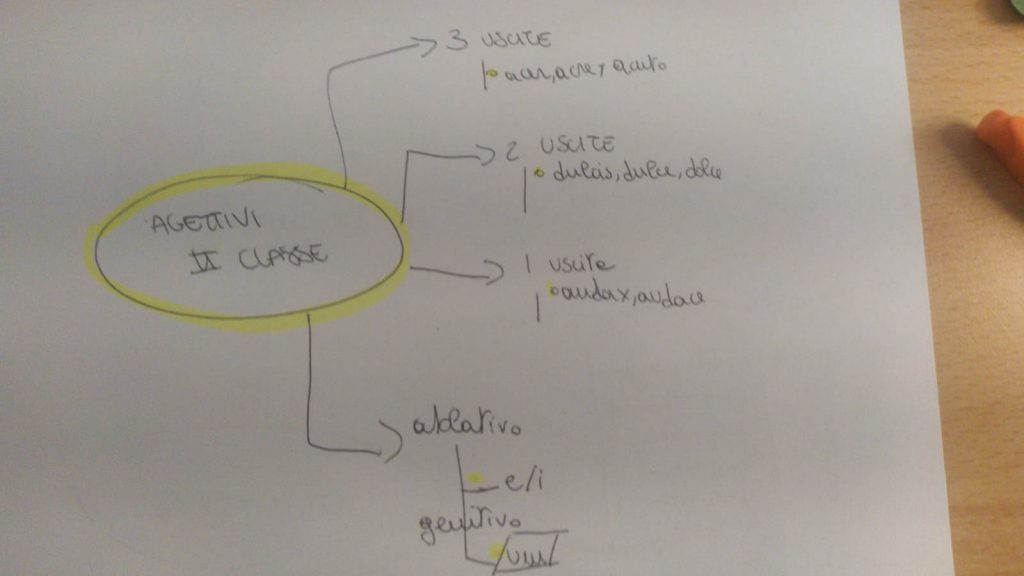 3 USCITE
acer, acre, acuto
2 USCITE
dulcis, dulce, dolce
AGETTIVI
II CLASSE
1 uscite
audax, audace
ablativo
e/i
genitivo
ium